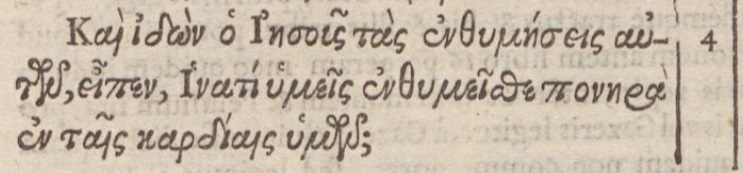 Καὶ ἰδὼν ὁ Ἰησοῦς τὰς ἐνθυμήσεις αὐ- 4
τῶν, εἶπεν, Ἱνατί ὑμεῖς ἐνθυμεῖσθε πονηρὰ
ἐν ταῖς καρδίαις ὑμῶν;